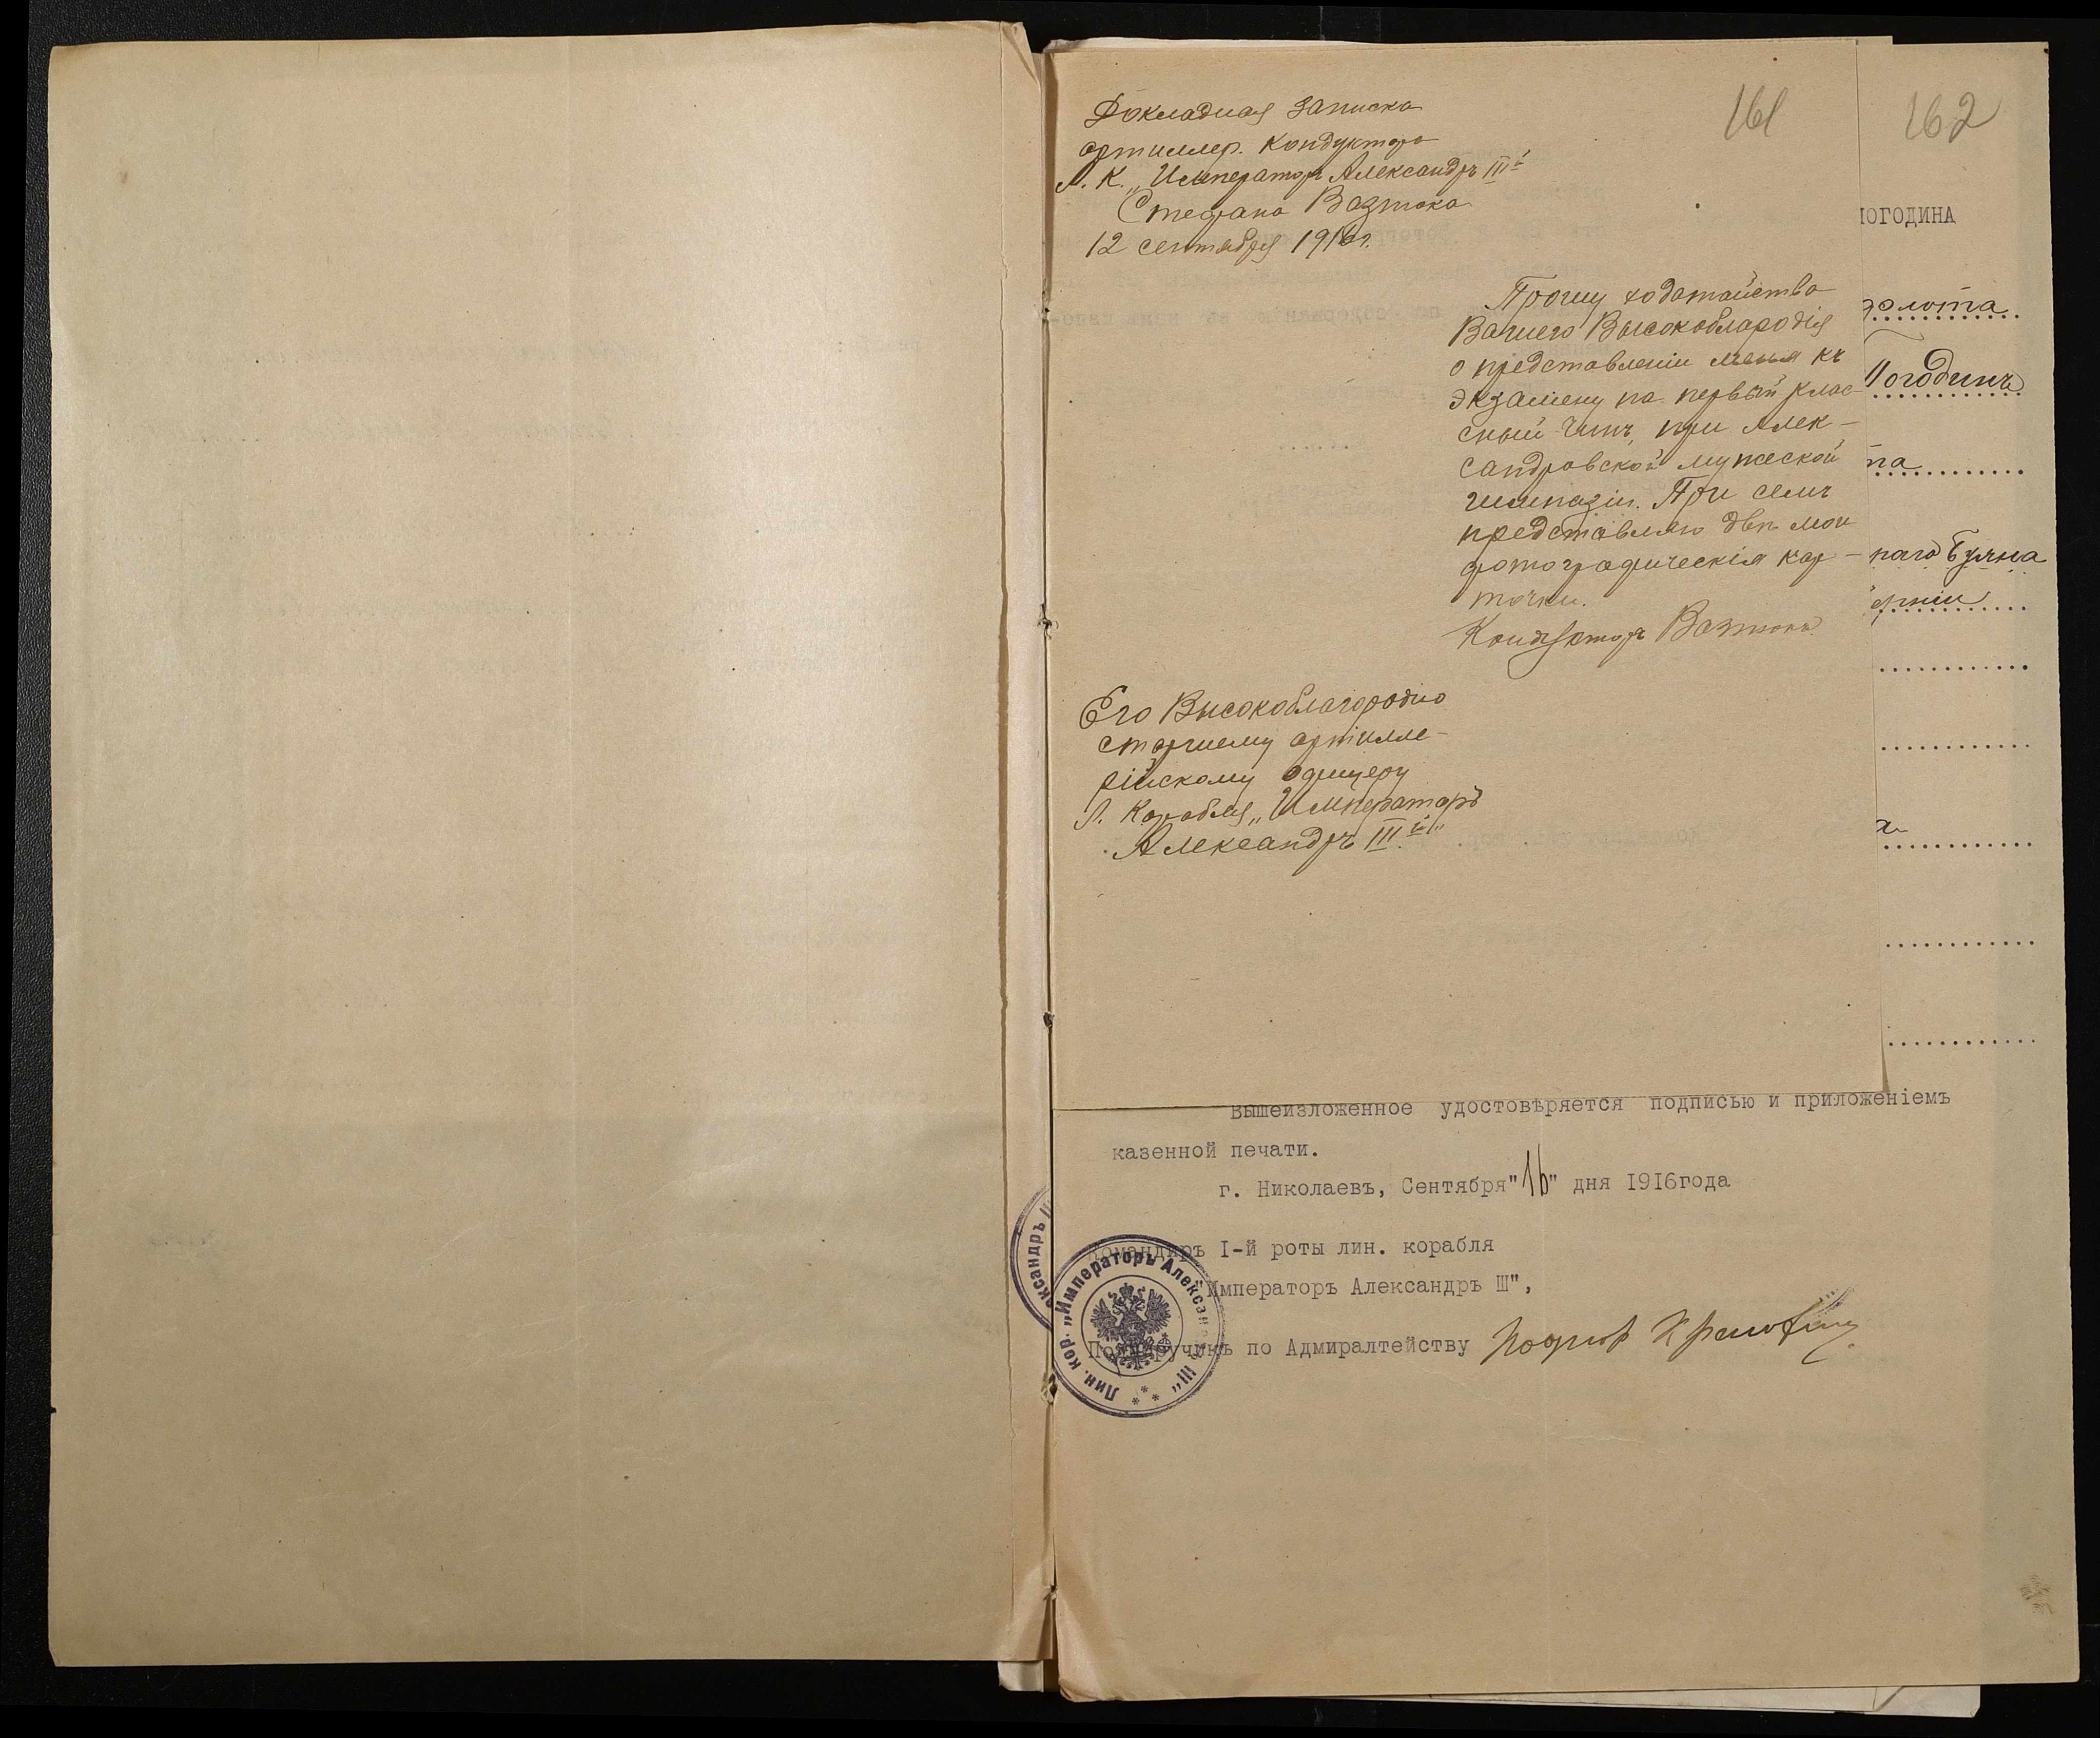 161
Докладная записка
артиллер. Кондуктора
Л. К. „Императоръ Александръ III й
Стефана Вазтока
12 сентября 1916 г.
Прошу ходатайства
Вашего Высокоблагородія
о представленіи меня къ
экзамену на первый клас-
сный Чинъ, при Алек-
сандровской мужеской
гимназіи. При семъ
представляю двѣ мои
фотографическія кар-
точки.
Кондукторъ
Его Высокоблагородію
старшему артилле-
рійскому офицеру
Л. Корабля „Императоръ
Александръ III й“
162
ПОГОДИНА
Погодинъ
на
Вышеизложенное удостовѣряется подписью и приложеніемъ
казенной печати.
г. Николаевъ, Сентября "16" дня 1916года
Командиръ I-й роты лин. корабля
"Императоръ Александръ Ш",
по Адмиралтейству
Лин. кор. „Императоръ Александръ III“